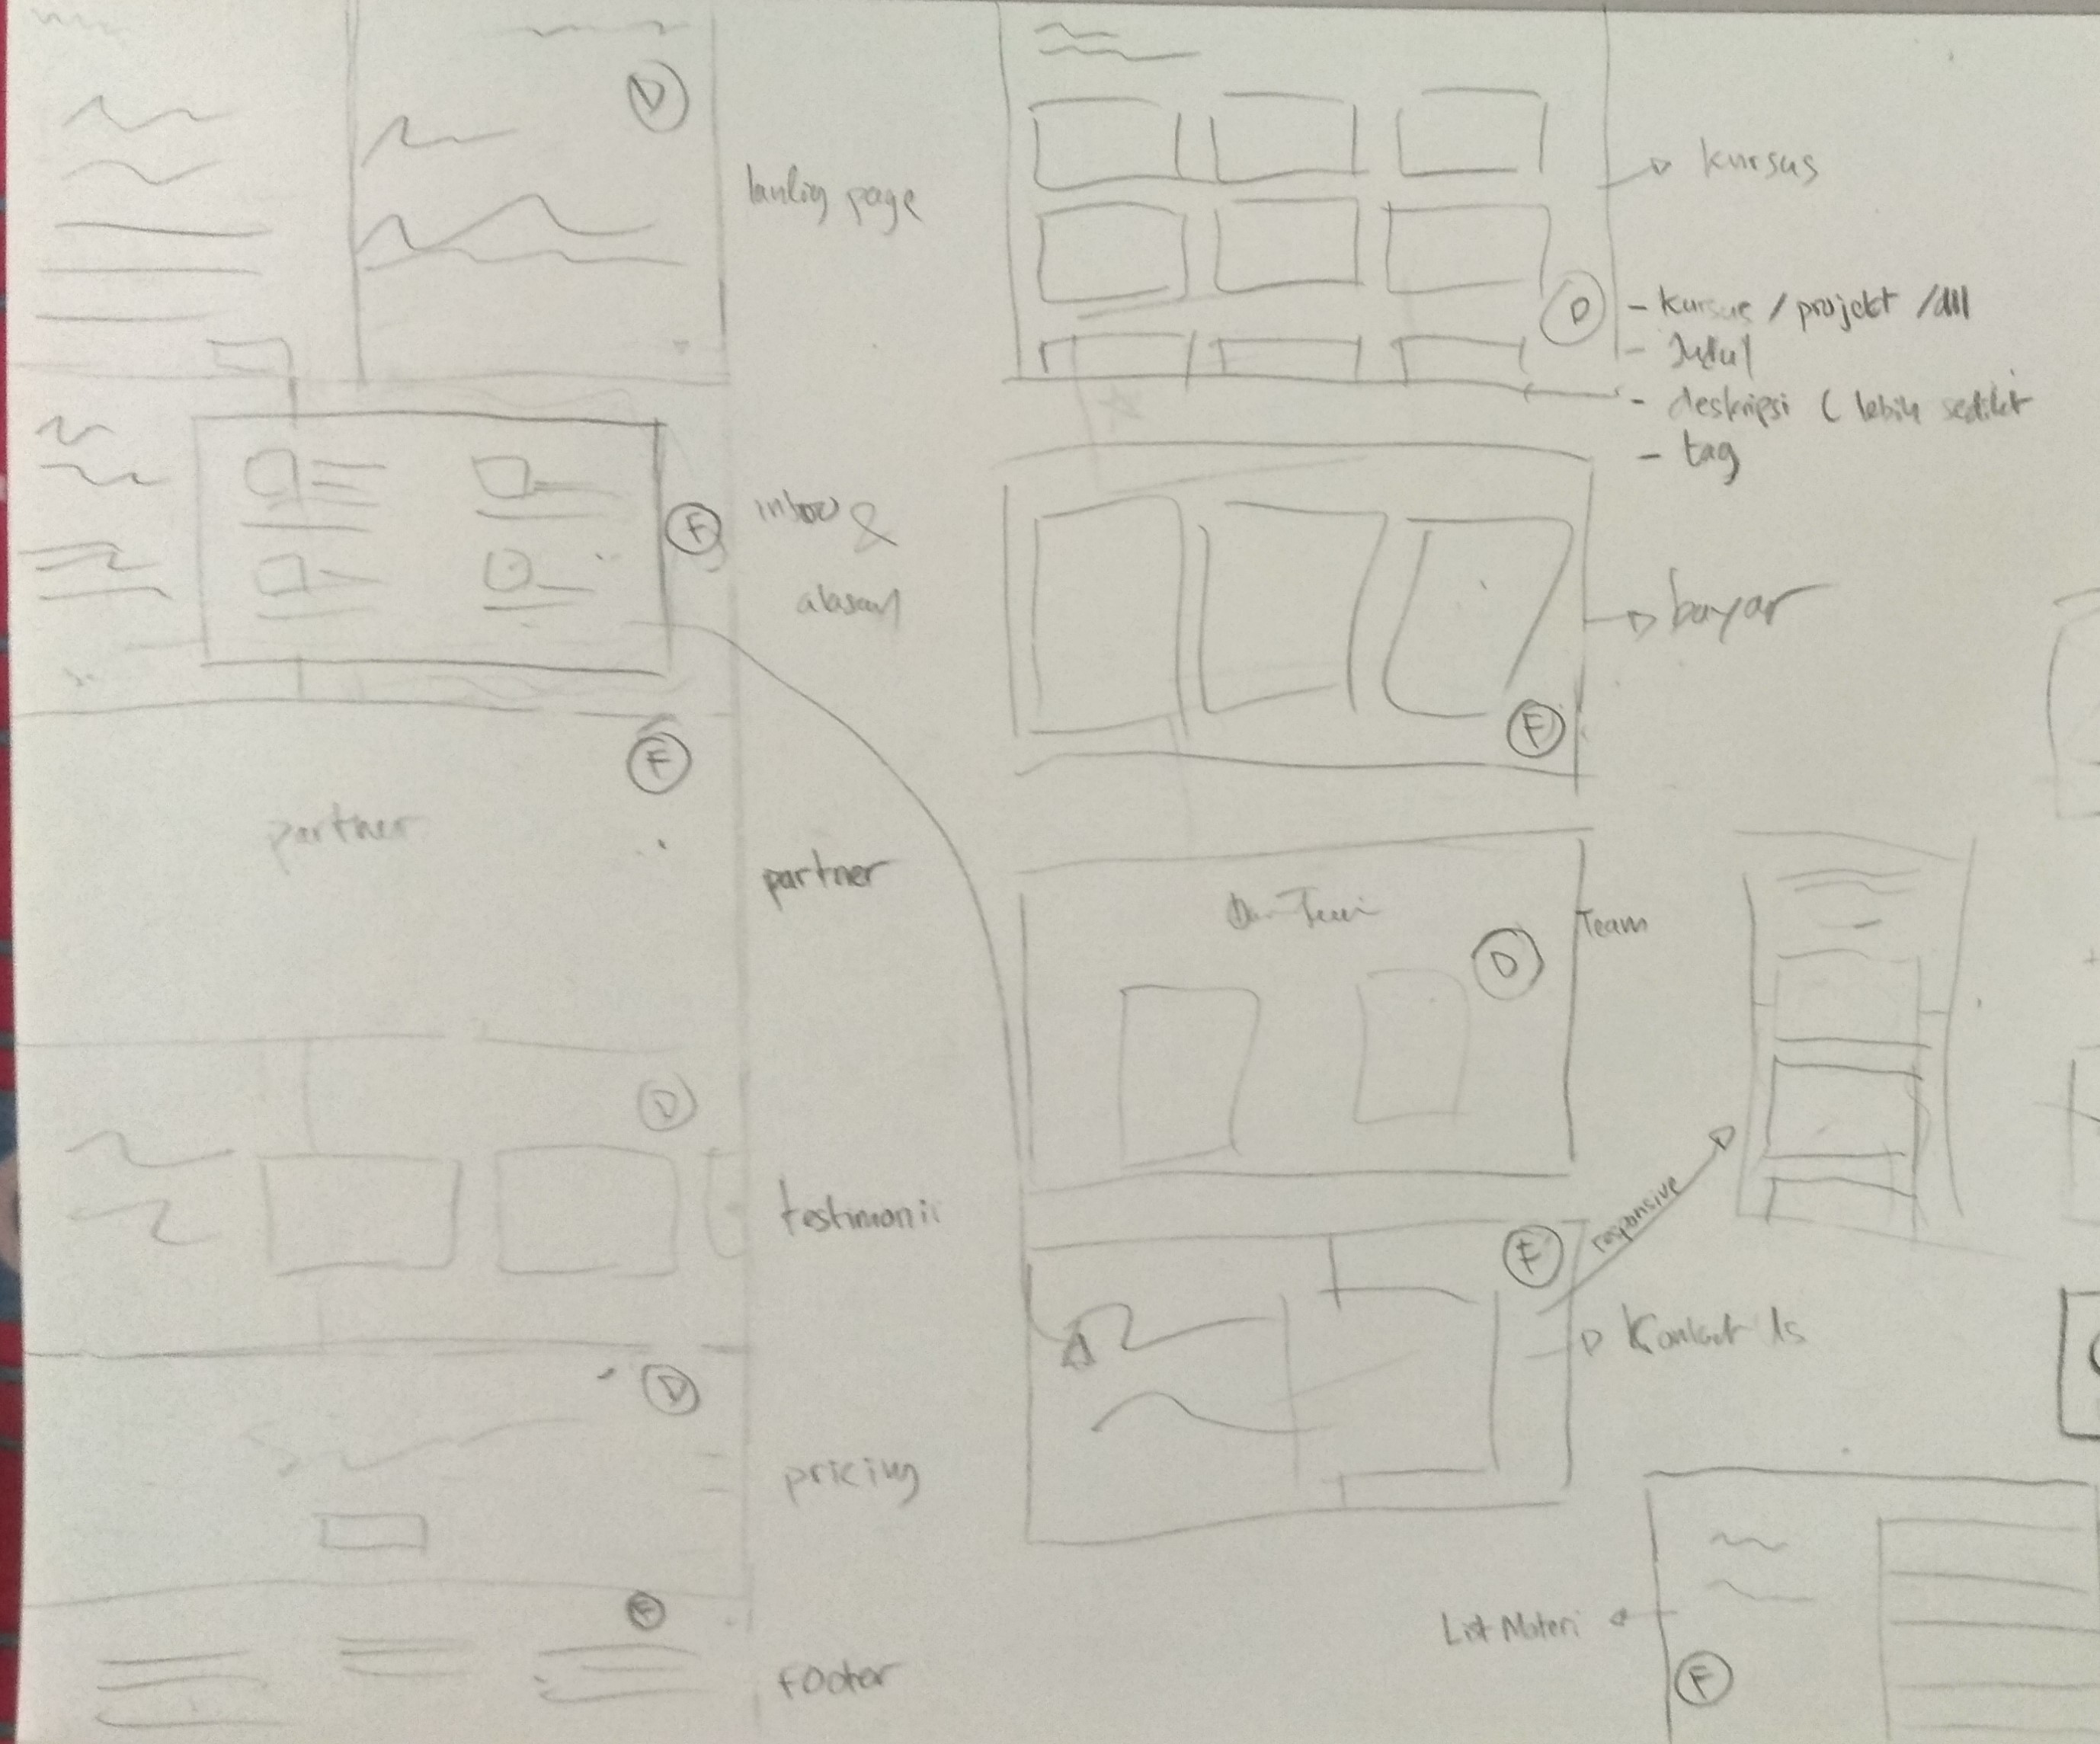 D
landing page
F
&
alasan
F
partner
partner
D
testimonii
D
pricing
F
footer
kursus
D
- kursus / projekt / dll
- Judul
- deskripsi ( lebih sedikit
- tag
bayar
F
Team
D
F
responsive
Kontact Us
List Materi
F